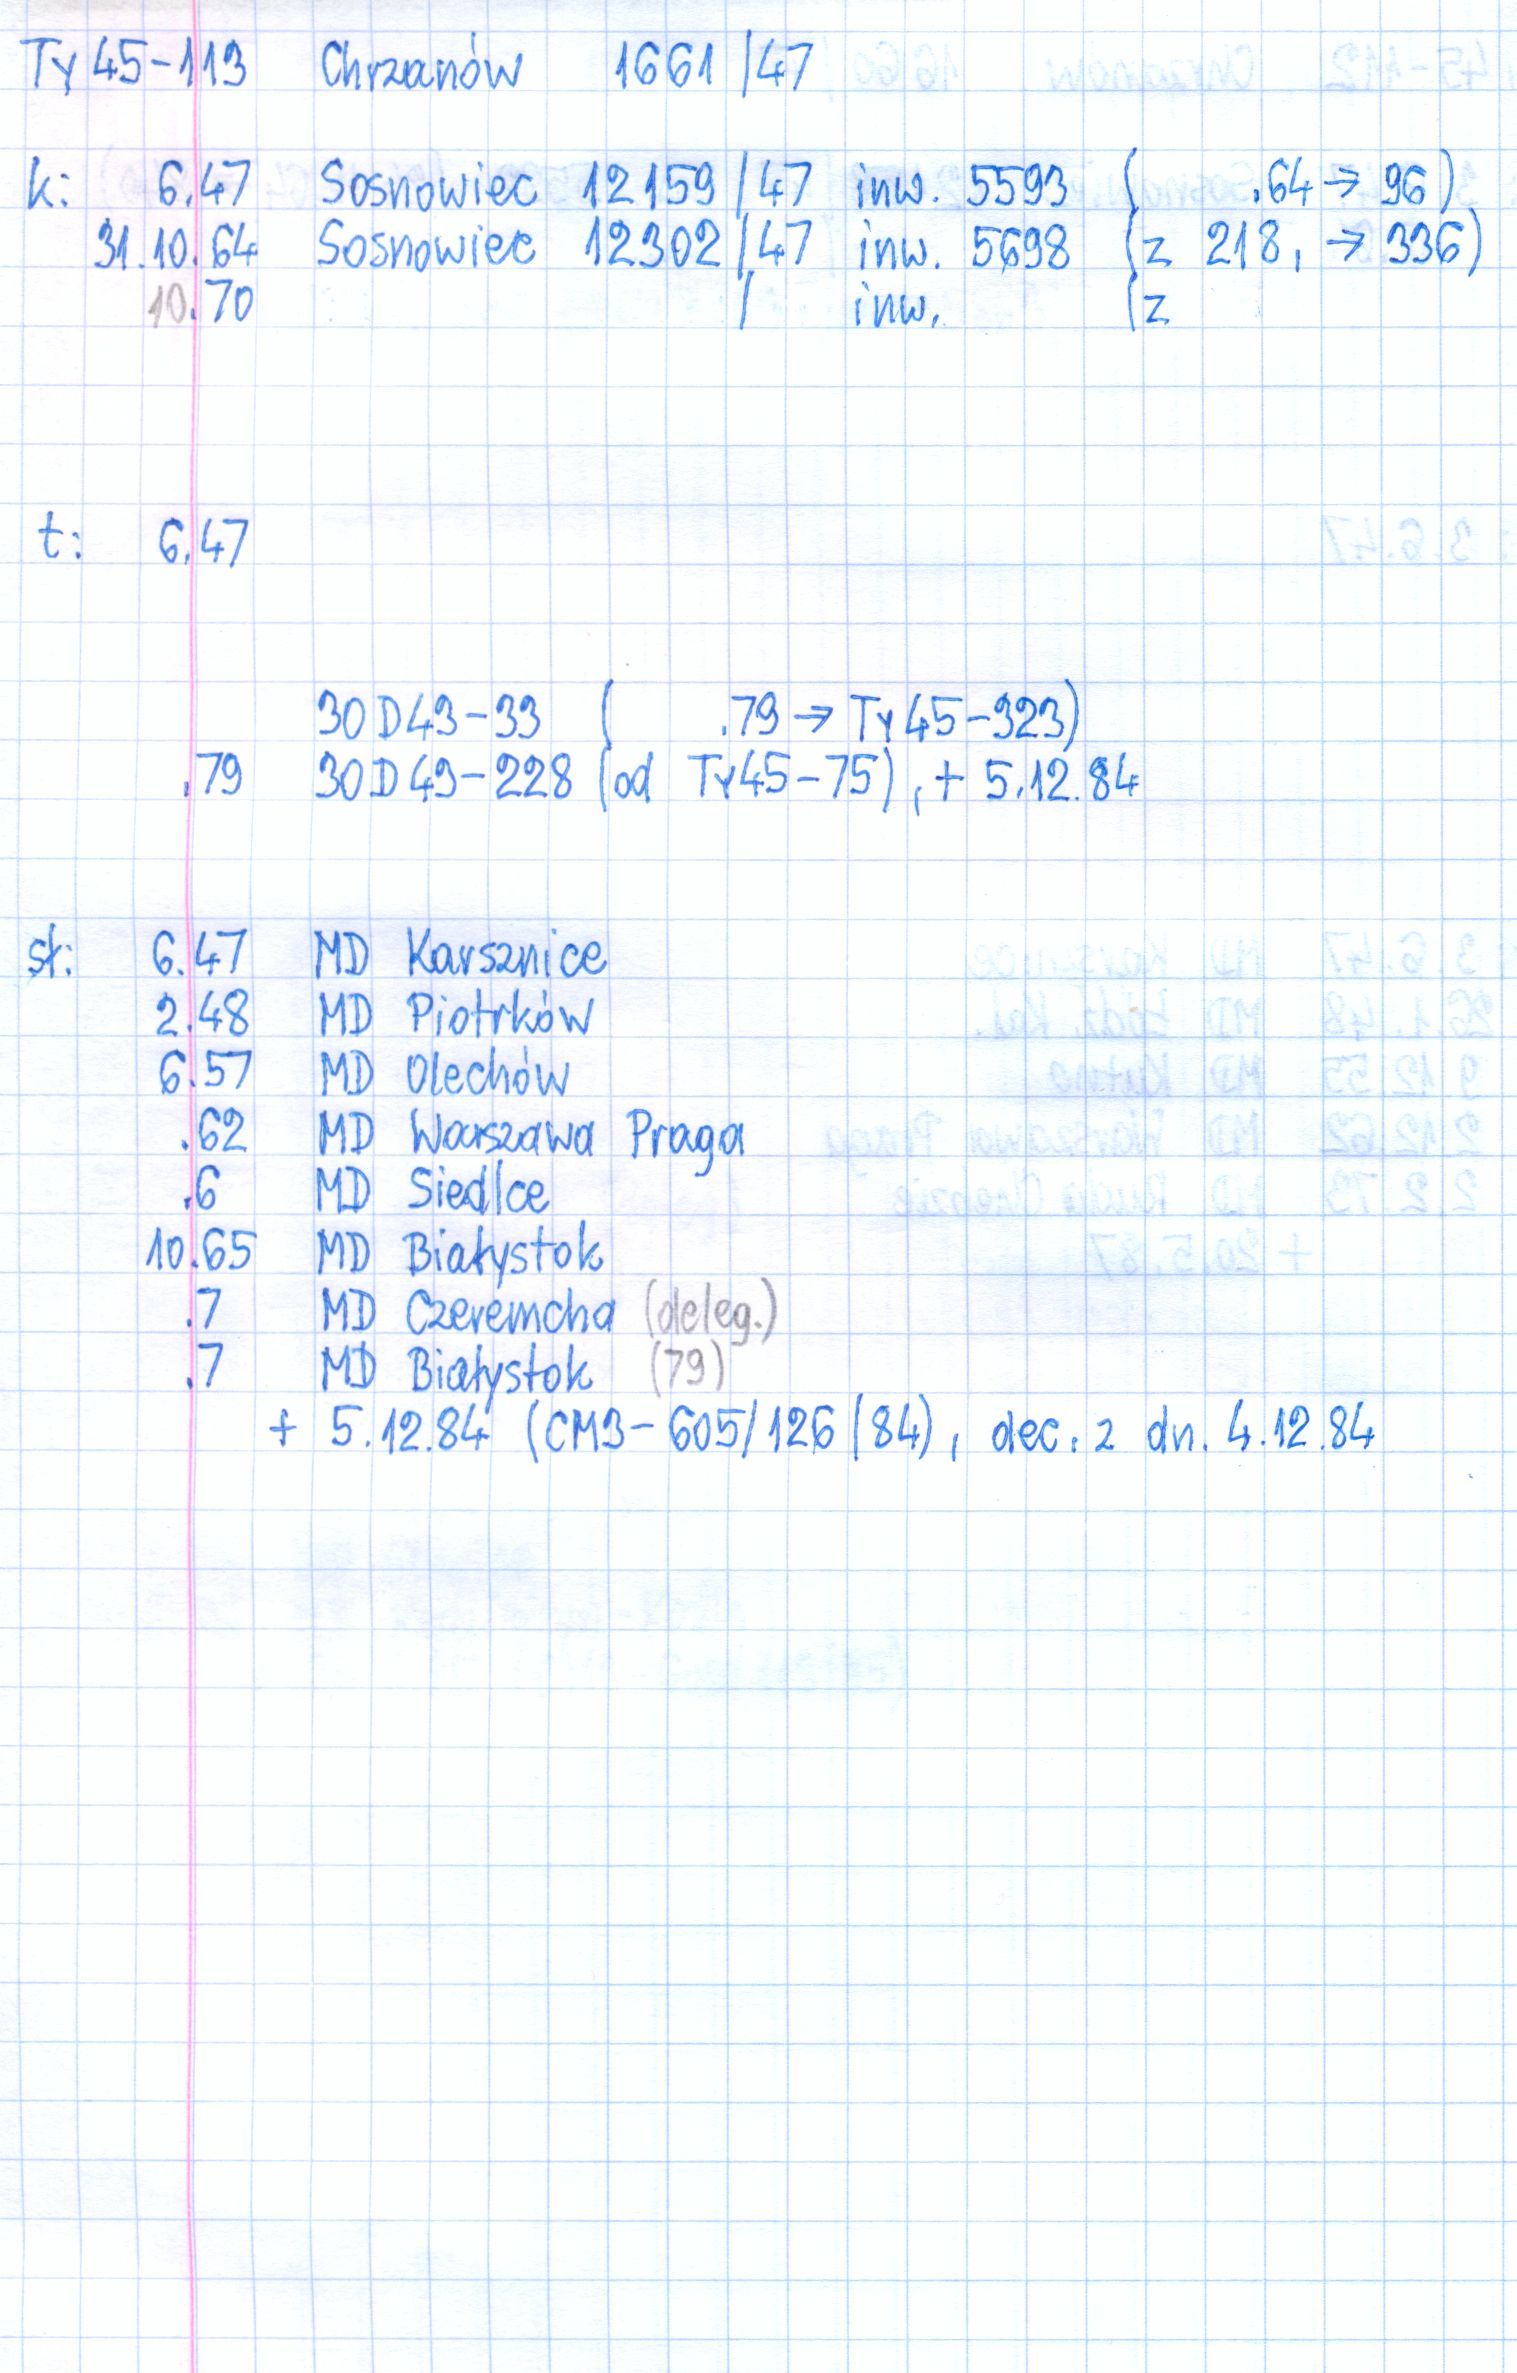 Ty 45-113 Chrzanów 1661/47
k: 6.47 Sosnowiec 12159/47 inw. 5593 ( .64 → 96)
31.10.64 Sosnowiec 12302/47 inw. 5698 (z 218, → 336)
10.70 / inw. (z
t: 6.47
30D43-33 ( .79 → Ty45-323)
.79 30D43-228 (od Ty45-75), + 5.12.84
st: 6.47 MD Karsznice
2.48 MD Piotrków
6.57 MD Olechów
.62 MD Warszawa Praga
.6 MD Siedlce
10.65 MD Białystok
.7 MD Czeremcha (deleg.)
.7 MD Białystok (79)
+ 5.12.84 (CM3-605/126/84), dec. z dn. 4.12.84